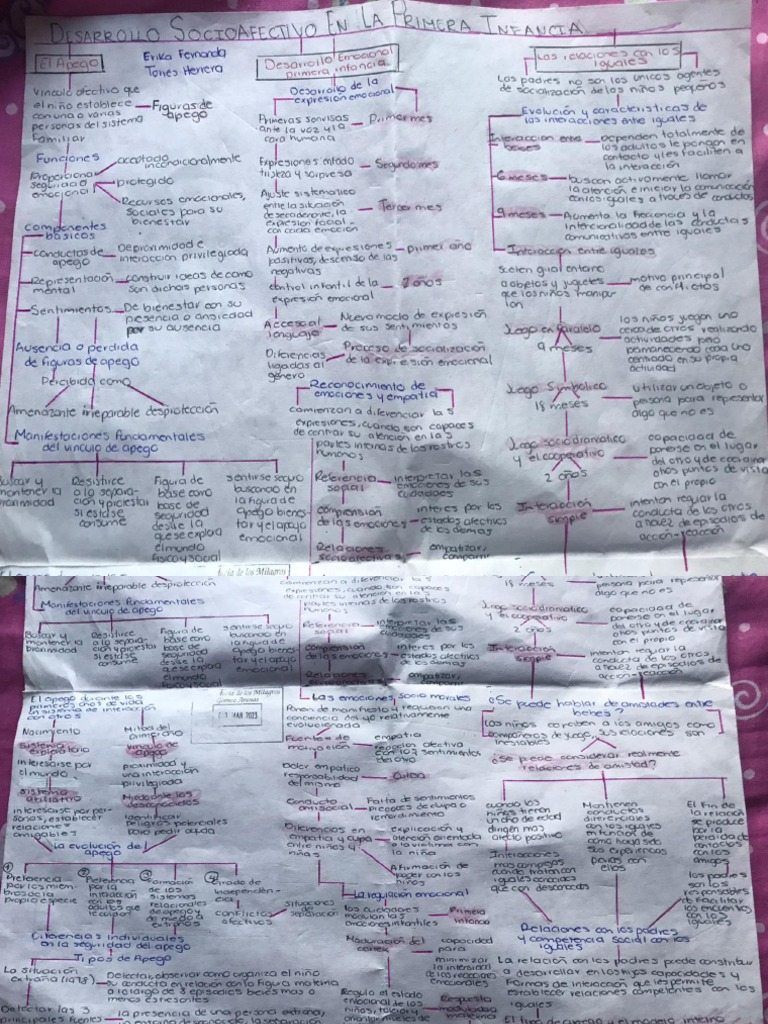 DESARROLLO SOCIOAFECTIVO EN LA PRIMERA INFANCIA
El Apego
Erika Fernanda
Torres Herrera
Vinculo afectivo que
el niño establece
con una o varias
personas del sistema
Familiar
Figuras de
apego
Funciones
Proporcionar
seguridad
emocional
aceptado
incondicionalmente
protegido
Recursos emocionales,
sociales para su
bienestar
Componentes
básicos
Conductas de
apego
De proximidad e
interacción privilegiada
Representación
mental
construir ideas de como
son dichas personas
Sentimientos
De bienestar con su
presencia o ansiedad
por su ausencia
Ausencia o perdida
de figuras de apego
Percibida como
Amenazante irreparable desprotección
Manifestaciones fundamentales
del vinculo de apego
Buscar y
mantener la
proximidad
Resistirse
a la separa-
ción y protestar
si esta se
consume
Figura de
base como
base de
seguridad
desde la
que se explora
el mundo
fisico y social
sentirse seguro
buscando en
la figura de
apego bienes-
tar y el apoyo
emocional
Desarrollo Emocional
primera infancia
Desarrollo de la
expresión emocional
Primeras sonrisas
ante la voz y la
cara humana
Primer mes
Expresiones enfado
tristeza y sorpresa
Segundo mes
Ajuste sistematico
entre la situación
la
expresión facial
con cada emoción
Tercer mes
Aumento de expresiones
positivas, descenso de las
negativas
Primer año
control infantil de la
expresión emocional
2 años
Acceso al
lenguaje
Nuevo modo de expresión
de sus sentimientos
Diferencias
ligadas al
género
Proceso de socialización
de la expresión emocional
Reconocimiento de
emociones y empatía
comienzan a diferenciar las
expresiones, cuando son capaces
de centrar su atención en las
partes internas de los rostros
humanos
Referencia
social
interpretar las
emociones de sus
cuidadores
comprensión
de las emociones
interes por los
estados afectivos
de los demas
Relaciones
socioafectivas
empatizar,
compartir
Las relaciones con los
iguales
Los padres no son los unicos agentes
de socialización de los niños pequeños
Evolución y caracteristicas de
las interacciones entre iguales
Interacción entre
bebes
dependen totalmente de
los adultos le pongan en
contacto y les faciliten a
la interacción
6 meses
buscan activamente llamar
la atención e iniciar la comunicación
con los iguales a través de conductas
9 meses
Aumenta la frecuencia y la
intencionalidad de las conductas
comunicativas entre iguales
Interacción entre iguales
suelen giral entorno
a objetos y juguetes
que los niños manipu-
lan
motivo principal
de conflictos
Juego en paralelo
9 meses
los niños juegan uno
cerca de otros realizando
actividades pero
permaneciendo cada uno
centrado en su propia
actividad
Juego Simbolico
18 meses
utilizar un objeto o
persona para representar
algo que no es
Juego sociodramatico
y el cooperativo
2 años
capacidad de
ponerse en el lugar
del otro y de coordinar
otros puntos de vista
con el propio
Interacción
simple
intentan regular la
conducta de los otros
a través de episodios de
acción-reacción
Amenazante irreparable desprotección
Manifestaciones fundamentales
del vinculo de apego
Buscar y
mantener la
proximidad
Resistirse
a la separa-
ción y protestar
si esta se
consume
Figura de
base como
base de
seguridad
desde la
que se explora
el mundo
fisico y social
sentirse seguro
buscando en
la figura de
apego bienes-
tar y el apoyo
emocional
El apego durante los
primeros años de vida
en sistema de interacción
con otros
Nacimiento
Sistema
exploratorio
interesarse por
el mundo
Sistema
afiliativo
interesarse por per-
sonas, establecer
relaciones
amigables
Mitad del
primer año
vinculo de
apego
proximidad y
una interacción
privilegiada
Miedo ante los
desconocidos
Identificar
peligros potenciales
para pedir ayuda
03 MAR 2023
La evolución del
apego
1 Preferencia
por los miem-
bros de la
propia especie
2 Preferencia
por la
interacción
con los
adultos que
le cuidan
3 Formación
de los
sistemas
relacionales
de apego y
de miedo a
extraños
4 Grado de
independen-
cia
conflictos
afectivos
situaciones
de separación
Diferencias individuales
en la seguridad del
apego
Tipos de Apego
La situación
extraña (1978)
Detectar, observar como organiza el niño
su conducta en relación con la figura materna
a lo largo de 8 episodios breves mas o
menos estresantes
Detectar las 3
principales fuentes
la presencia de una persona extraña,
comienzan a diferenciar las
expresiones, cuando son capaces
de centrar su atención en las
partes internas de los rostros
humanos
Referencia
social
interpretar las
emociones de sus
cuidadores
comprensión
de las emociones
interes por los
estados afectivos
de los demas
Relaciones
empatizar,
Las emociones, socio morales
Ponen de manifiesto y requieren una
conciencia del yo relativamente
evolucionada
Fuentes de
motivación
empatia
reacción afectiva
con los sentimientos
del otro
Dolor empatico
responsabilidad
del mismo
Culpa
Conducta
antisocial
Falta de sentimientos
precoces de culpa o
remordimiento
Diferencias en
empatia y culpa
entre niños y
niñas
Explicación y
atención orientada
a la victima con
la niña
Afirmación de
poder con los
niños
La regulación emocional
los cuidadores
modulan las
emociones infantiles
Primera
infancia
Maduración del
cortex
capacidad
para
minimizar
la intensidad
de las reacciones
emocionales
Regulo el estado
emocional de los
niños,
Respuesta
modulada
18 meses
persona para representar
algo que no es
Juego sociodramatico
y el cooperativo
2 años
capacidad de
ponerse en el lugar
del otro y de coordinar
otros puntos de vista
con el propio
Interacción
simple
intentan regular la
conducta de los otros
a través de episodios de
acción-reacción
¿Se puede hablar de amistades entre
bebes?
Los niños conciben a los amigos como
compañeros de juego, sus relaciones son
inestables
¿se puede considerar realmente
relaciones de amistad?
cuando los
niños tienen
un año de edad
dirigen mas
afecto positivo
Interacciones
mas complejas
cuando tratan con
iguales conocidos
que con desconocidos
Mantienen
conductas
diferenciales
con los iguales
en funcion de
como haya sido
sus experiencias
previas con
ellos
El Fin de
la relación
se produce
por la
perdida de
contactos
con los
amigos
los padres
son los
responsables
de facilitar
los encuentros
con los
iguales
Relaciones con los padres
y competencia social con los
iguales
La relación con los padres puede contribuir
a desarrollar en los hijos capacidades y
Formas de interacción que les permite
establecer relaciones competentes con los
iguales